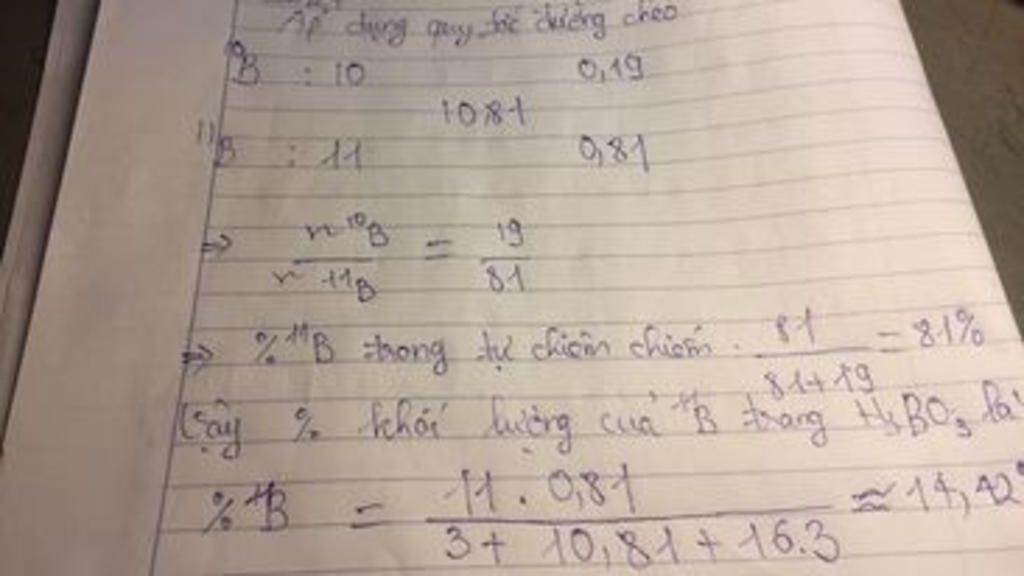 Áp dụng quy tắc đường chéo
¹⁰B : 10 0,19
1081
¹¹B : 11 0,81
=> n ¹⁰B / n ¹¹B = 19 / 81
=> % ¹¹B trong tự chiên chiếm. 81 / 81+19 = 81%
Vậy % khối lượng của ¹¹B trong H₃BO₃ là
% ¹¹B = 11 . 0,81 / 3 + 10,81 + 16.3 ≈ 14,42